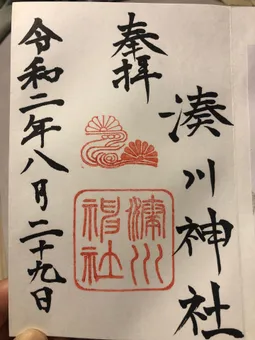 奉拝
湊川神社
湊川神社
令和二年八月二十九日